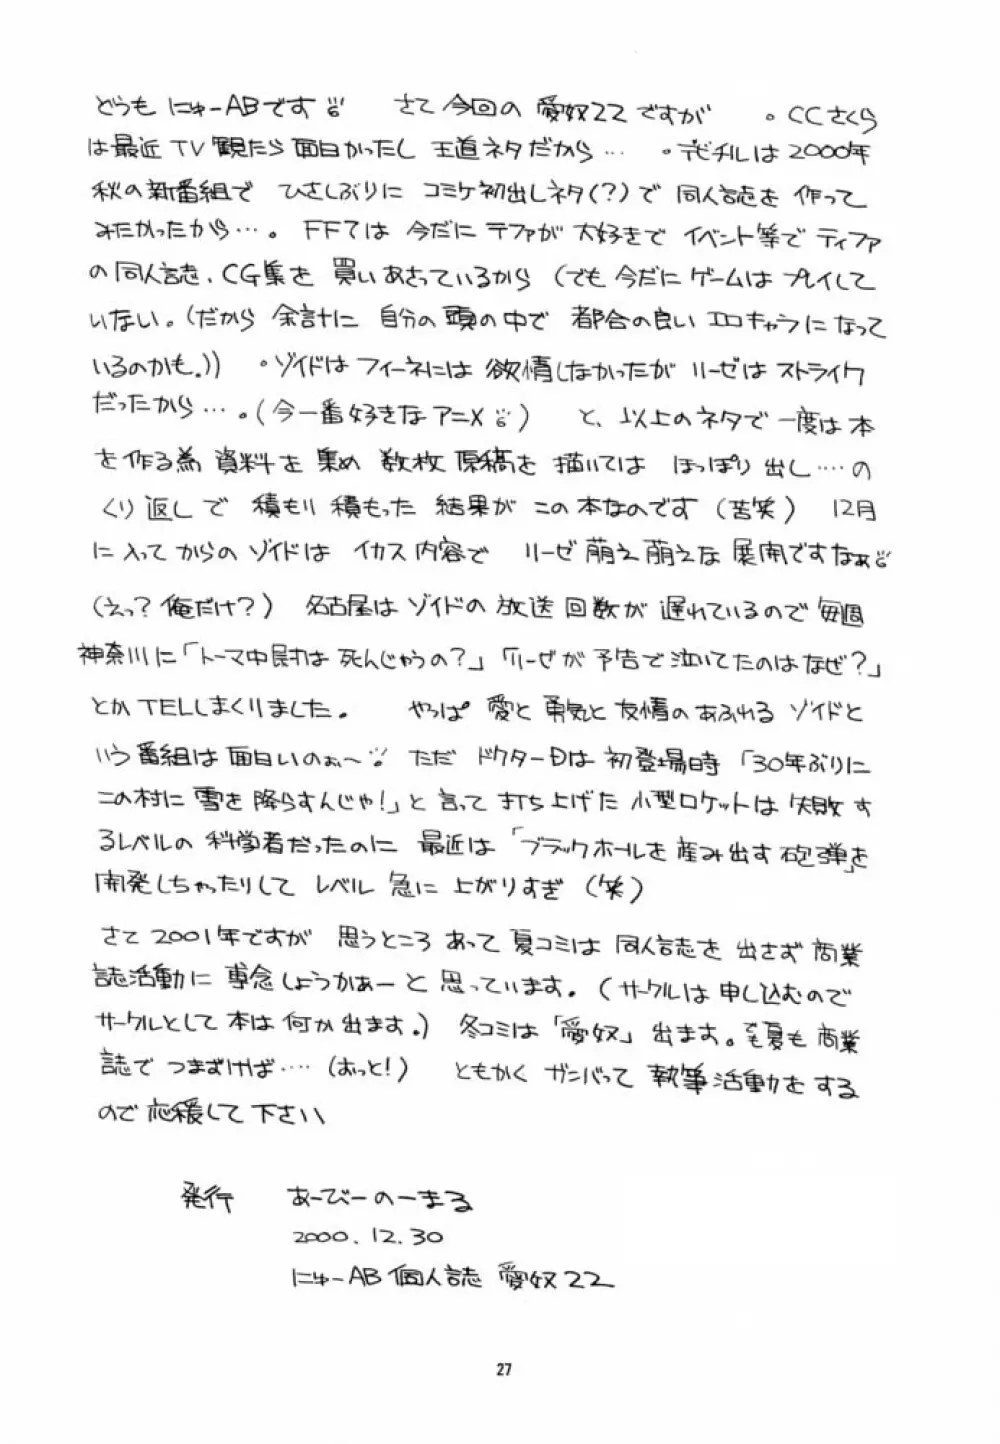 どうも にゅーABです さて 今回の 愛奴22ですが 。CCさくら
は最近 TV観たら 面白かったし 王道ネタだから… 。デビチルは2000年
秋の新番組で ひさしぶりに コミケ初出しネタ(?)で 同人誌を 作って
みたかったから…。 FF7は 今だに ティファが 大好きで イベント等で ティファ
の同人誌、CG集を 買いあさっているから (でも 今だに ゲームは プレイして
いない。(だから 余計に 自分の頭の中で 都合の良い エロキャラになって
いるのかも。)) 。ゾイドは フィーネには 欲情しなかったが リーゼは ストライク
だったから…。(今一番好きなアニメ) と、以上のネタで 一度は本
を作る為 資料を 集め 数枚 原稿を 描いては ほっぽり出し…‥の
くり返しで 積もり 積もった 結果が この本なのです(苦笑) 12月
に入ってからの ゾイドは イカス内容で リーゼ萌え萌えな 展開ですなぁ
(えっ? 俺だけ?) 名古屋は ゾイドの 放送回数が 遅れているので 毎週
神奈川に「トーマ中尉は 死んじゃうの?」「リーゼが 予告で泣いてたのはなぜ?」
とか TELしまくりました。 やっぱ 愛と 勇気と 友情のあふれる ゾイドと
いう番組は 面白いのぉ〜 ただ ドクターDは 初登場時「30年ぶりに
この村に 雪を 降らすんじゃ!」と 言って 打ち上げた 小型ロケットは 失敗す
るレベルの 科学者だったのに 最近は「ブラックホールを 産み出す 砲弾」を
開発しちゃったりして レベル 急に 上がりすぎ(笑)
さて 2001年ですが 思うところ あって 夏コミは 同人誌を 出さず 商業
誌活動に 専念しようかあーと 思っています。(サークルは 申し込むので
サークルとして 本は 何か 出ます。) 冬コミは「愛奴」出ます。でも夏も 商業
誌で つまずけば…‥(おっと!) ともかく ガンバって 執筆活動をする
ので 応援して 下さい
発行 あーびーのーまる
2000.12.30
にゅーAB 個人誌 愛奴22
27